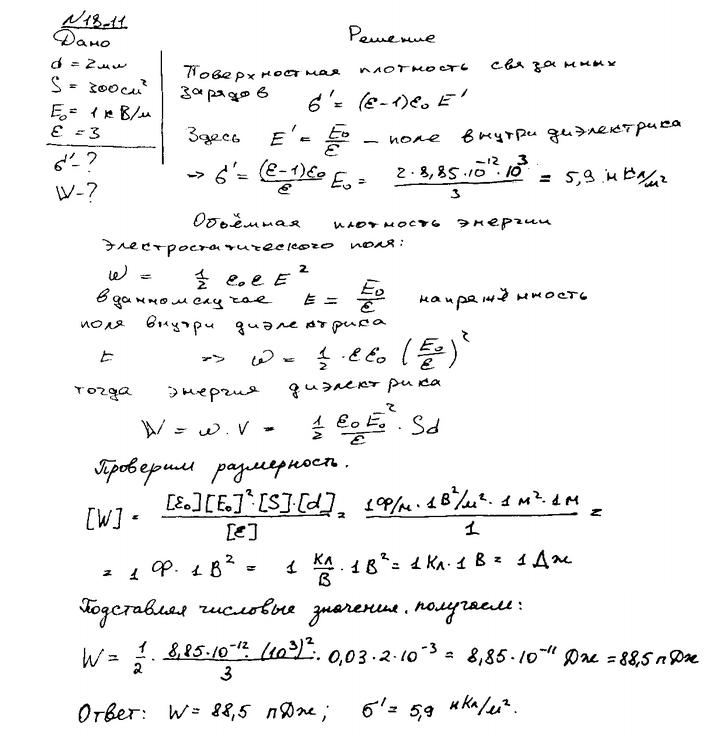 N18-11
Дано
Решение
d = 2мм
S = 300см²
E₀ = 1 кВ/м
ε = 3
σ' - ?
W - ?
Поверхностная плотность связанных
зарядов σ' = (ε-1)ε₀ E'
Здесь E' = E₀/ε — поле внутри диэлектрика
→ σ' = (ε-1)ε₀/ε E₀ = 2·8,85·10⁻¹²·10³/3 = 5,9 нКл/м²
Объёмная плотность энергии
электростатического поля:
w = 1/2 ε₀ε E²
в данном случае E = E₀/ε напряжённость
поля внутри диэлектрика
E => w = 1/2 · εε₀ (E₀/ε)²
тогда энергия диэлектрика
W = w·V = 1/2 ε₀E₀²/ε · Sd
Проверим размерность.
[W] = [ε₀][E₀]²·[S]·[d]/[ε] = 1Ф/м·1В²/м²·1м²·1м/1 =
= 1 Ф·1В² = 1 Кл/В ·1В² = 1Кл·1В = 1Дж
Подставляя числовые значения, получаем:
W = 1/2 · 8,85·10⁻¹²·(10³)²/3 · 0,03·2·10⁻³ = 8,85·10⁻¹¹ Дж = 88,5 пДж
Ответ: W = 88,5 пДж; σ' = 5,9 нКл/м².